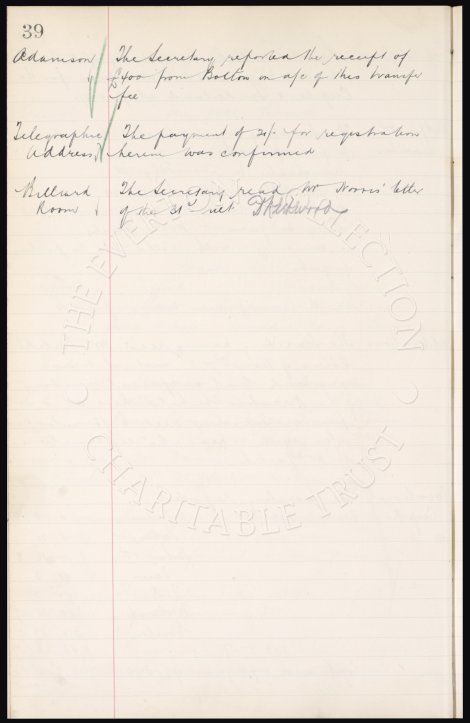 39
Adamson The Secretary reported the receipt of
£400 from Bolton on a/c of this transfer
fee
Telegraphic The payment of 21/- for registration
Address herein was confirmed
Billiard The Secretary read Mr Norris' letter
Room of the 31st ult
THE EVERTON COLLECTION
CHARITABLE TRUST